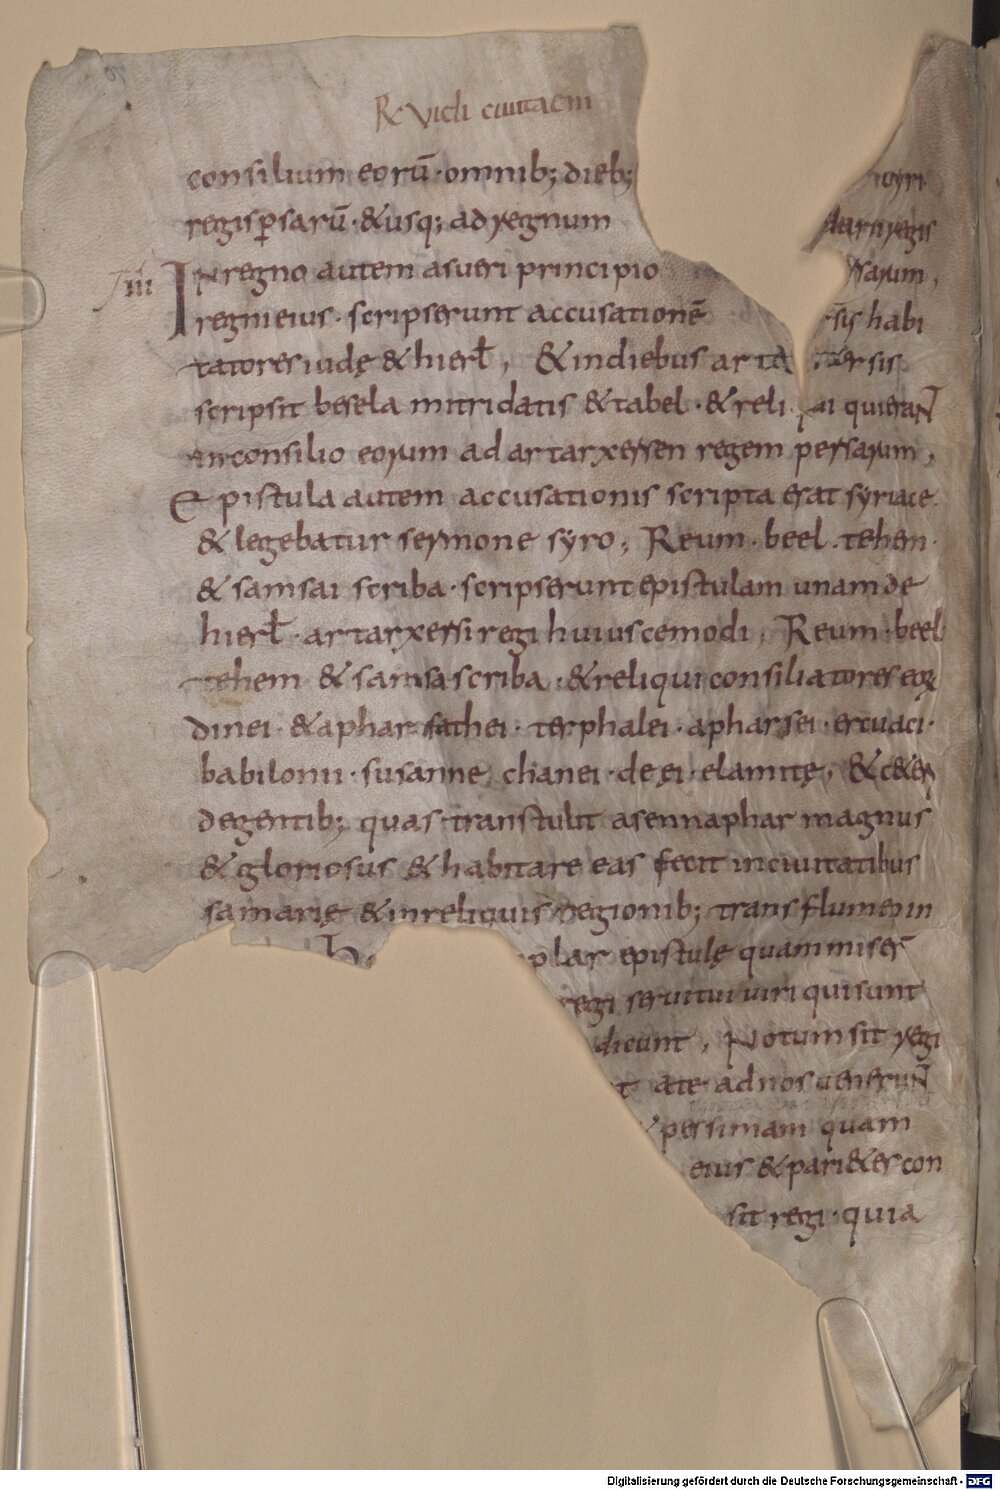 R& vidi civitaem
consilium eorū · omnib; dieb; cyri
regis p̱sarū · &usq; ad regnum darii regis
persarum,
IIII
IN regno autem asueri principio
regni eius · scripserunt accusationē rsis habi
tatores iudę & hierł , & in diebus arta ersis
scripsit besela mitridatis & tabel · & reli qui qui eraN̄
in consilio eorum ad artarxersen regem persarum ,
Epistula autem accusationis scripta erat syriace ·
& legebatur sermone syro , Reum · beel · tehem ·
& samsai scriba · scripserunt epistulam unam de
hierł · artarxersi regi huiuscemodi , Reum · beel
tehem & samsa scriba · & reliqui consiliatores eoꝝ
dinei · & aphar sathei · terphalei · apharsei · ercuaci ·
babilonii · susanne chanei · de ęi · elamitę, & c&eri
de gentib; quas transtulit asennaphar magnus
& gloriosus & habitare eas fecit in civitatibus
samarię & in reliquis regionib; trans flumen in
plar epistulę quam miser̄
regi servi tui viri qui sunt
dicunt , Notum sit regi
t a te ad nos veneruN̄
& pessimam quam
eius & pari&es con
sit regi · quia
Digitalisierung gefördert durch die Deutsche Forschungsgemeinschaft - DFG